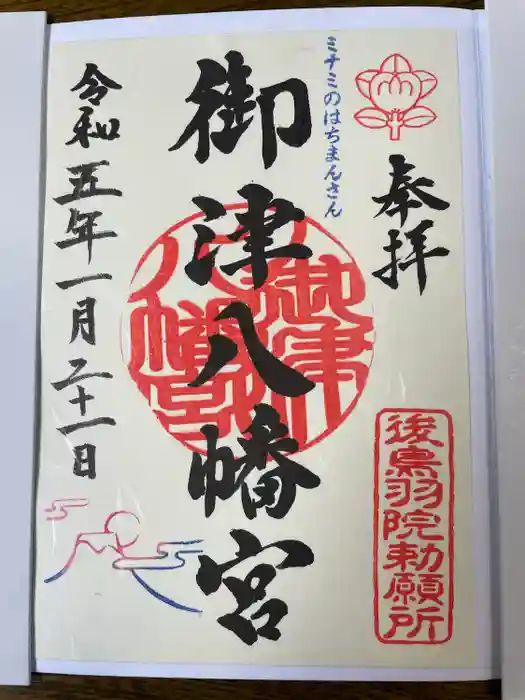 奉拝
後鳥羽院勅願所
ミナミのはちまんさん
御津八幡宮
令和五年一月二十一日